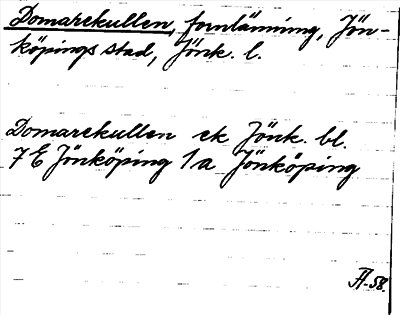 Domarekullen, fornlämning, Jön-
köpings stad, Jönk. l.
Domarekullen ek Jönk. bl.
7 E Jönköping 1a Jönköping
-58.